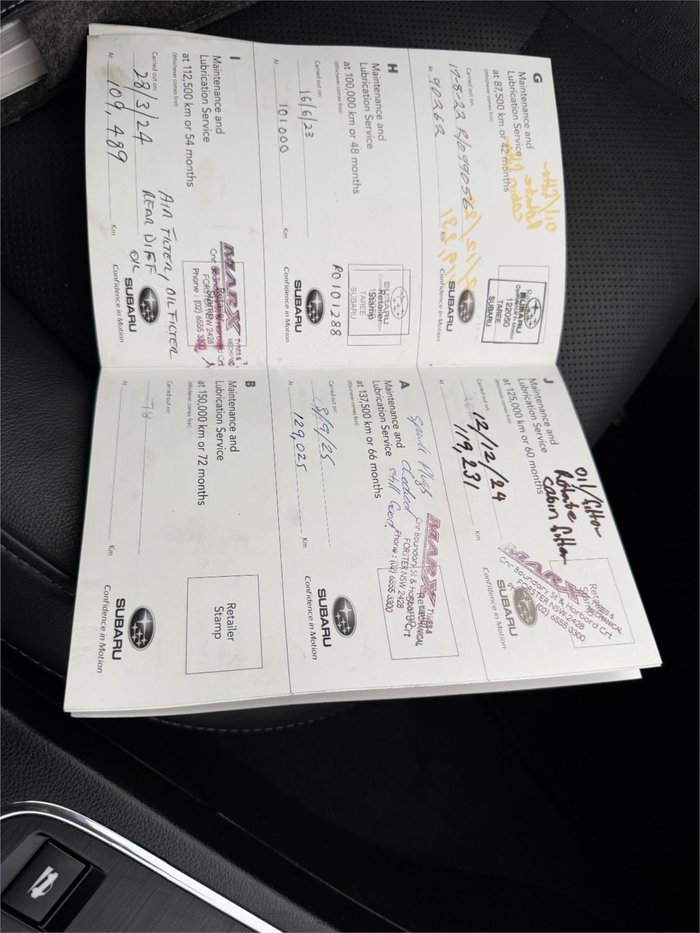 G
Maintenance and
Lubrication Service
at 87,500 km or 42 months
(Whichever comes first)
Carried out on:
17-8-22 R/O 99056
At 90262 Km
SUBARU
Confidence in Motion
122050
TAREE
SUBARU
SUBARU
Confidence in Motion
H
Maintenance and
Lubrication Service
at 100,000 km or 48 months
(Whichever comes first)
Carried out on:
16/6/23
At 101000 Km
Retailer
Stamp
SUBARU
TAREE
SUBARU
RO101288
SUBARU
Confidence in Motion
I
Maintenance and
Lubrication Service
at 112,500 km or 54 months
(Whichever comes first)
Carried out on:
28/3/24
At 109,489 Km
MARX TYRES &
MECHANICAL
FORSTER NSW 2428
Phone: (02) 6555 3300
AIR FILTER, OIL FILTER
REAR DIFF
OIL
SUBARU
Confidence in Motion
J
Maintenance and
Lubrication Service
at 125,000 km or 60 months
(Whichever comes first)
Carried out on:
12/12/24
At 119,231 Km
oil/filter
Rotate
cabin filter
MARX TYRES &
MECHANICAL
Cnr Boundary St & Harbord Crt
FORSTER NSW 2428
(02) 6555 3300
SUBARU
Confidence in Motion
A
Maintenance and
Lubrication Service
at 137,500 km or 66 months
(Whichever comes first)
Carried out on:
18/9/25
At 129,025 Km
Spark Plugs
checked
still Good
MARX TYRES &
MECHANICAL
Cnr Boundary St & Harbord Crt
FORSTER NSW 2428
Phone: (02) 6555 3300
SUBARU
Confidence in Motion
B
Maintenance and
Lubrication Service
at 150,000 km or 72 months
(Whichever comes first)
Carried out on:
At Km
Retailer
Stamp
SUBARU
Confidence in Motion